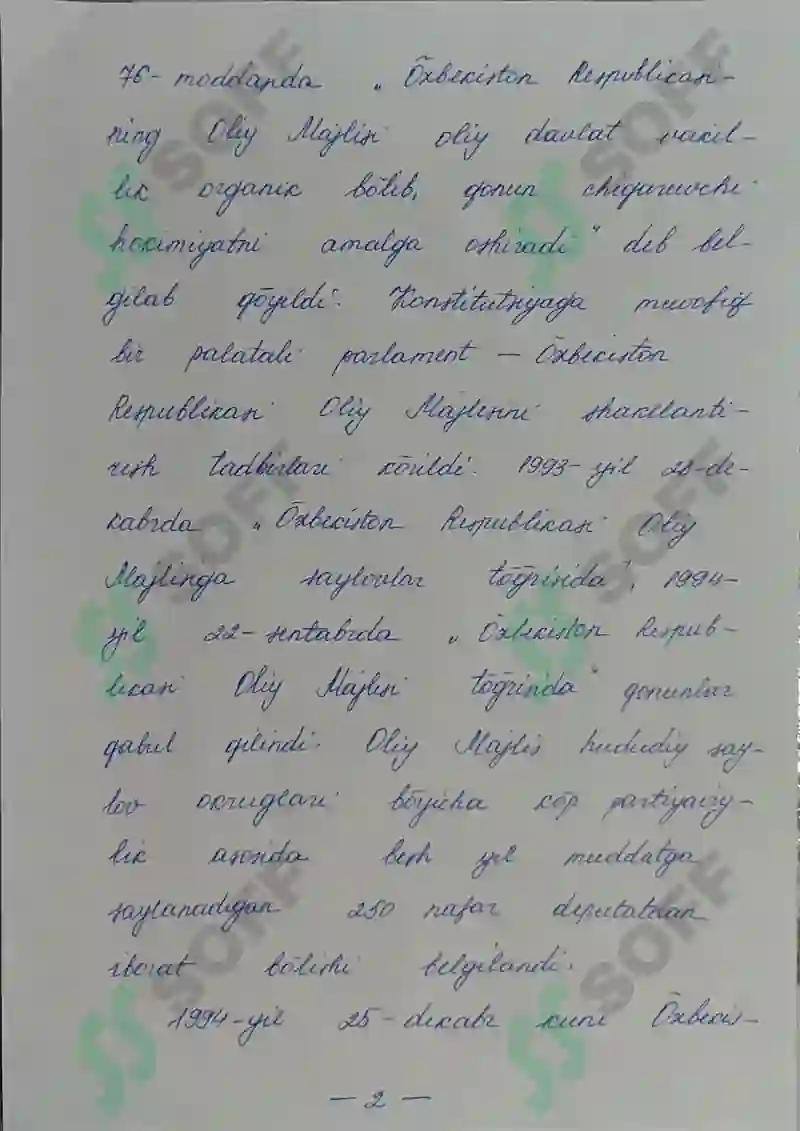 76-moddasida „Ōzbekiston Respublikasi-
ning Oliy Majlisi oliy davlat vakil-
lik organik bōlib, qonun chiqaruvchi
hokimiyatni amalga oshiradi" deb bel-
gilab qōyildi. Konstitutsiyaga muvofiq
bir palatali parlament — Ōzbekiston
Respublikasi Oliy Majlisini shakllanti-
rish tadbirlari kōrildi. 1993-yil 28-de-
kabrda „Ōzbekiston Respublikasi Oliy
Majlisiga saylovlar tōğrisida", 1994-
yil 22-sentabrda „Ōzbekiston Respub-
likasi Oliy Majlisi tōğrisida" qonunlar
qabul qilindi. Oliy Majlis hududiy say-
lov okruglari bōyicha kōp partiyaviy-
lik asosida besh yil muddatga
saylanadigan 250 nafar deputatdan
iborat bōlishi belgilandi.
1994-yil 25-dekabr kuni Ōzbekis-
— 2 —
SOFF
SOFF
SOFF
SOFF
SOFF
SOFF